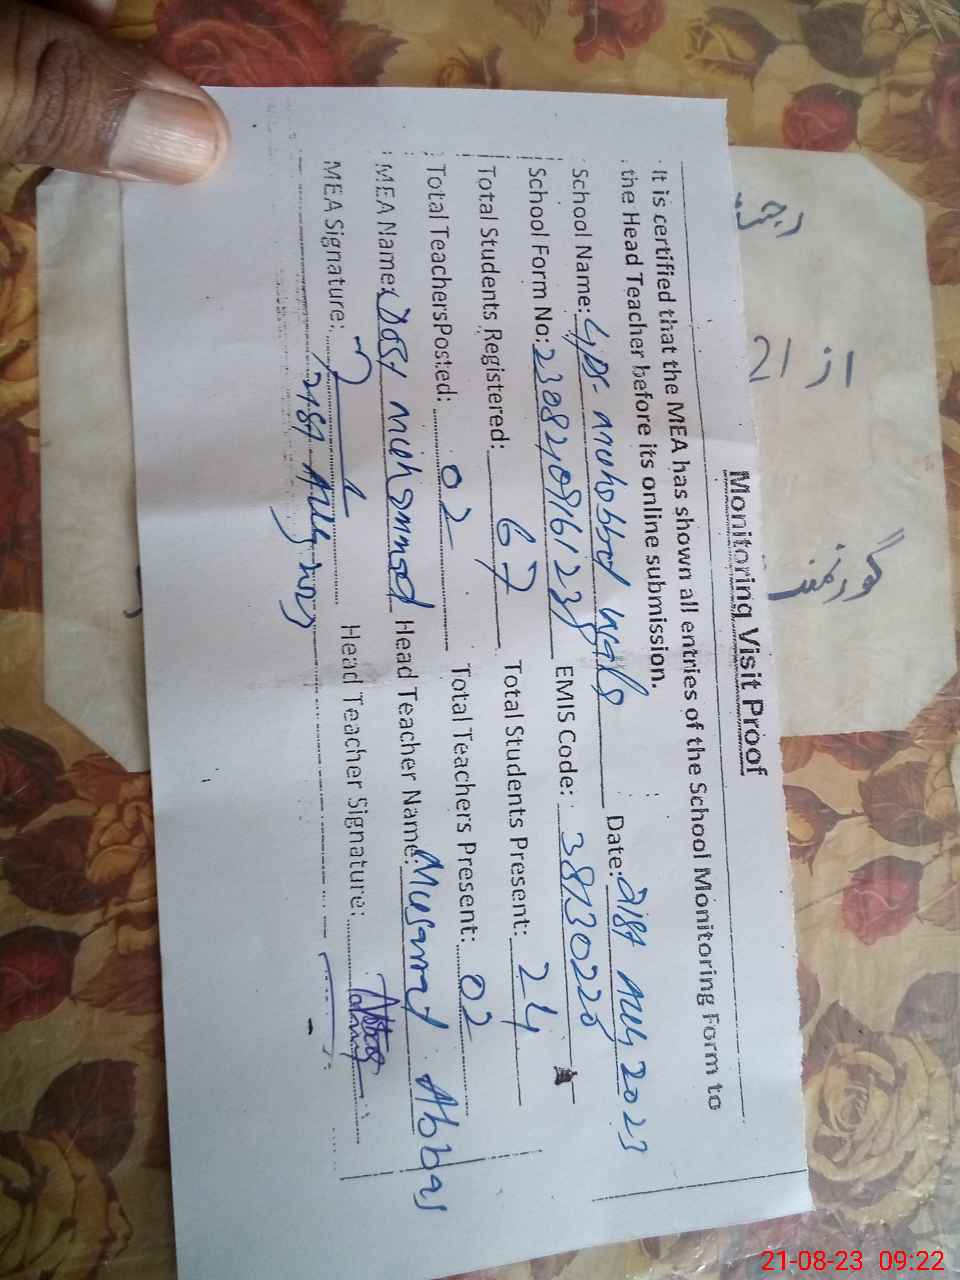 Monitoring Visit Proof
It is certified that the MEA has shown all entries of the School Monitoring Form to
the Head Teacher before its online submission.
School Name: Gps Muhabbat Date: 21st Aug 2023
School Form No: EMIS Code: 38130220
Total Students Registered: 67 Total Students Present: 24
Total TeachersPosted: 02 Total Teachers Present: 02
MEA Name: Dost Muhammad Head Teacher Name: Musarrat Abbas
MEA Signature: Head Teacher Signature:
21st Aug 2023
رجسٹر
از 21
گورنمنٹ
21-08-23 09:22